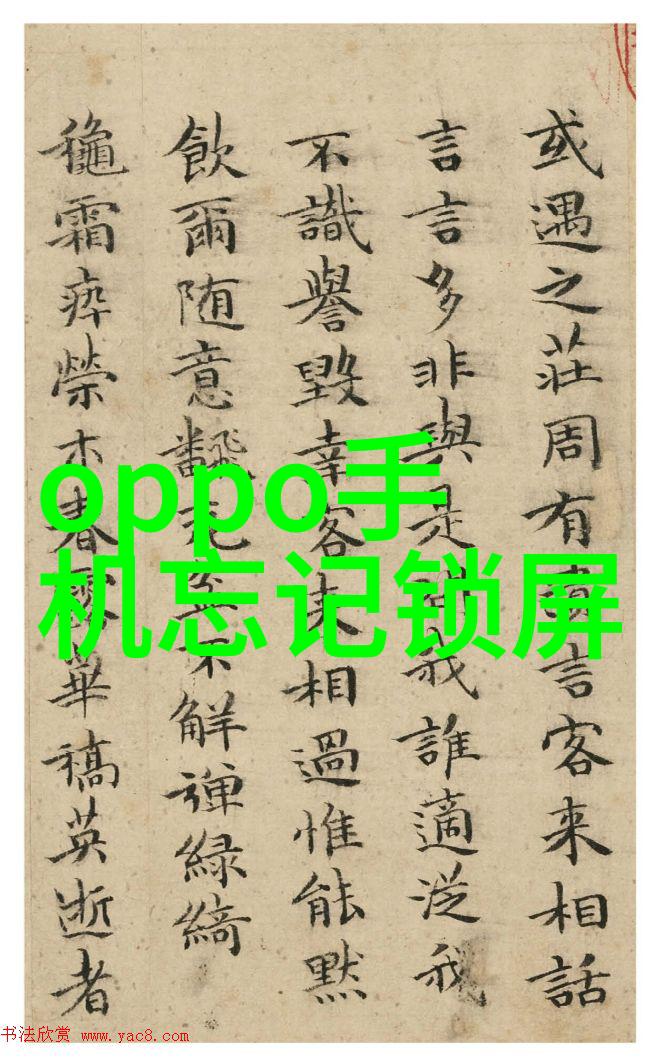 或遇之莊周有言客来相話
言言多非與是我誰適從我
不識譽毀幸客来相過惟能默
飲爾随意不觧弾綠綺
穐霜瘁榮木春華稿英逝者
oppo手
机忘记锁屏
书法欣赏 www.yac8.com